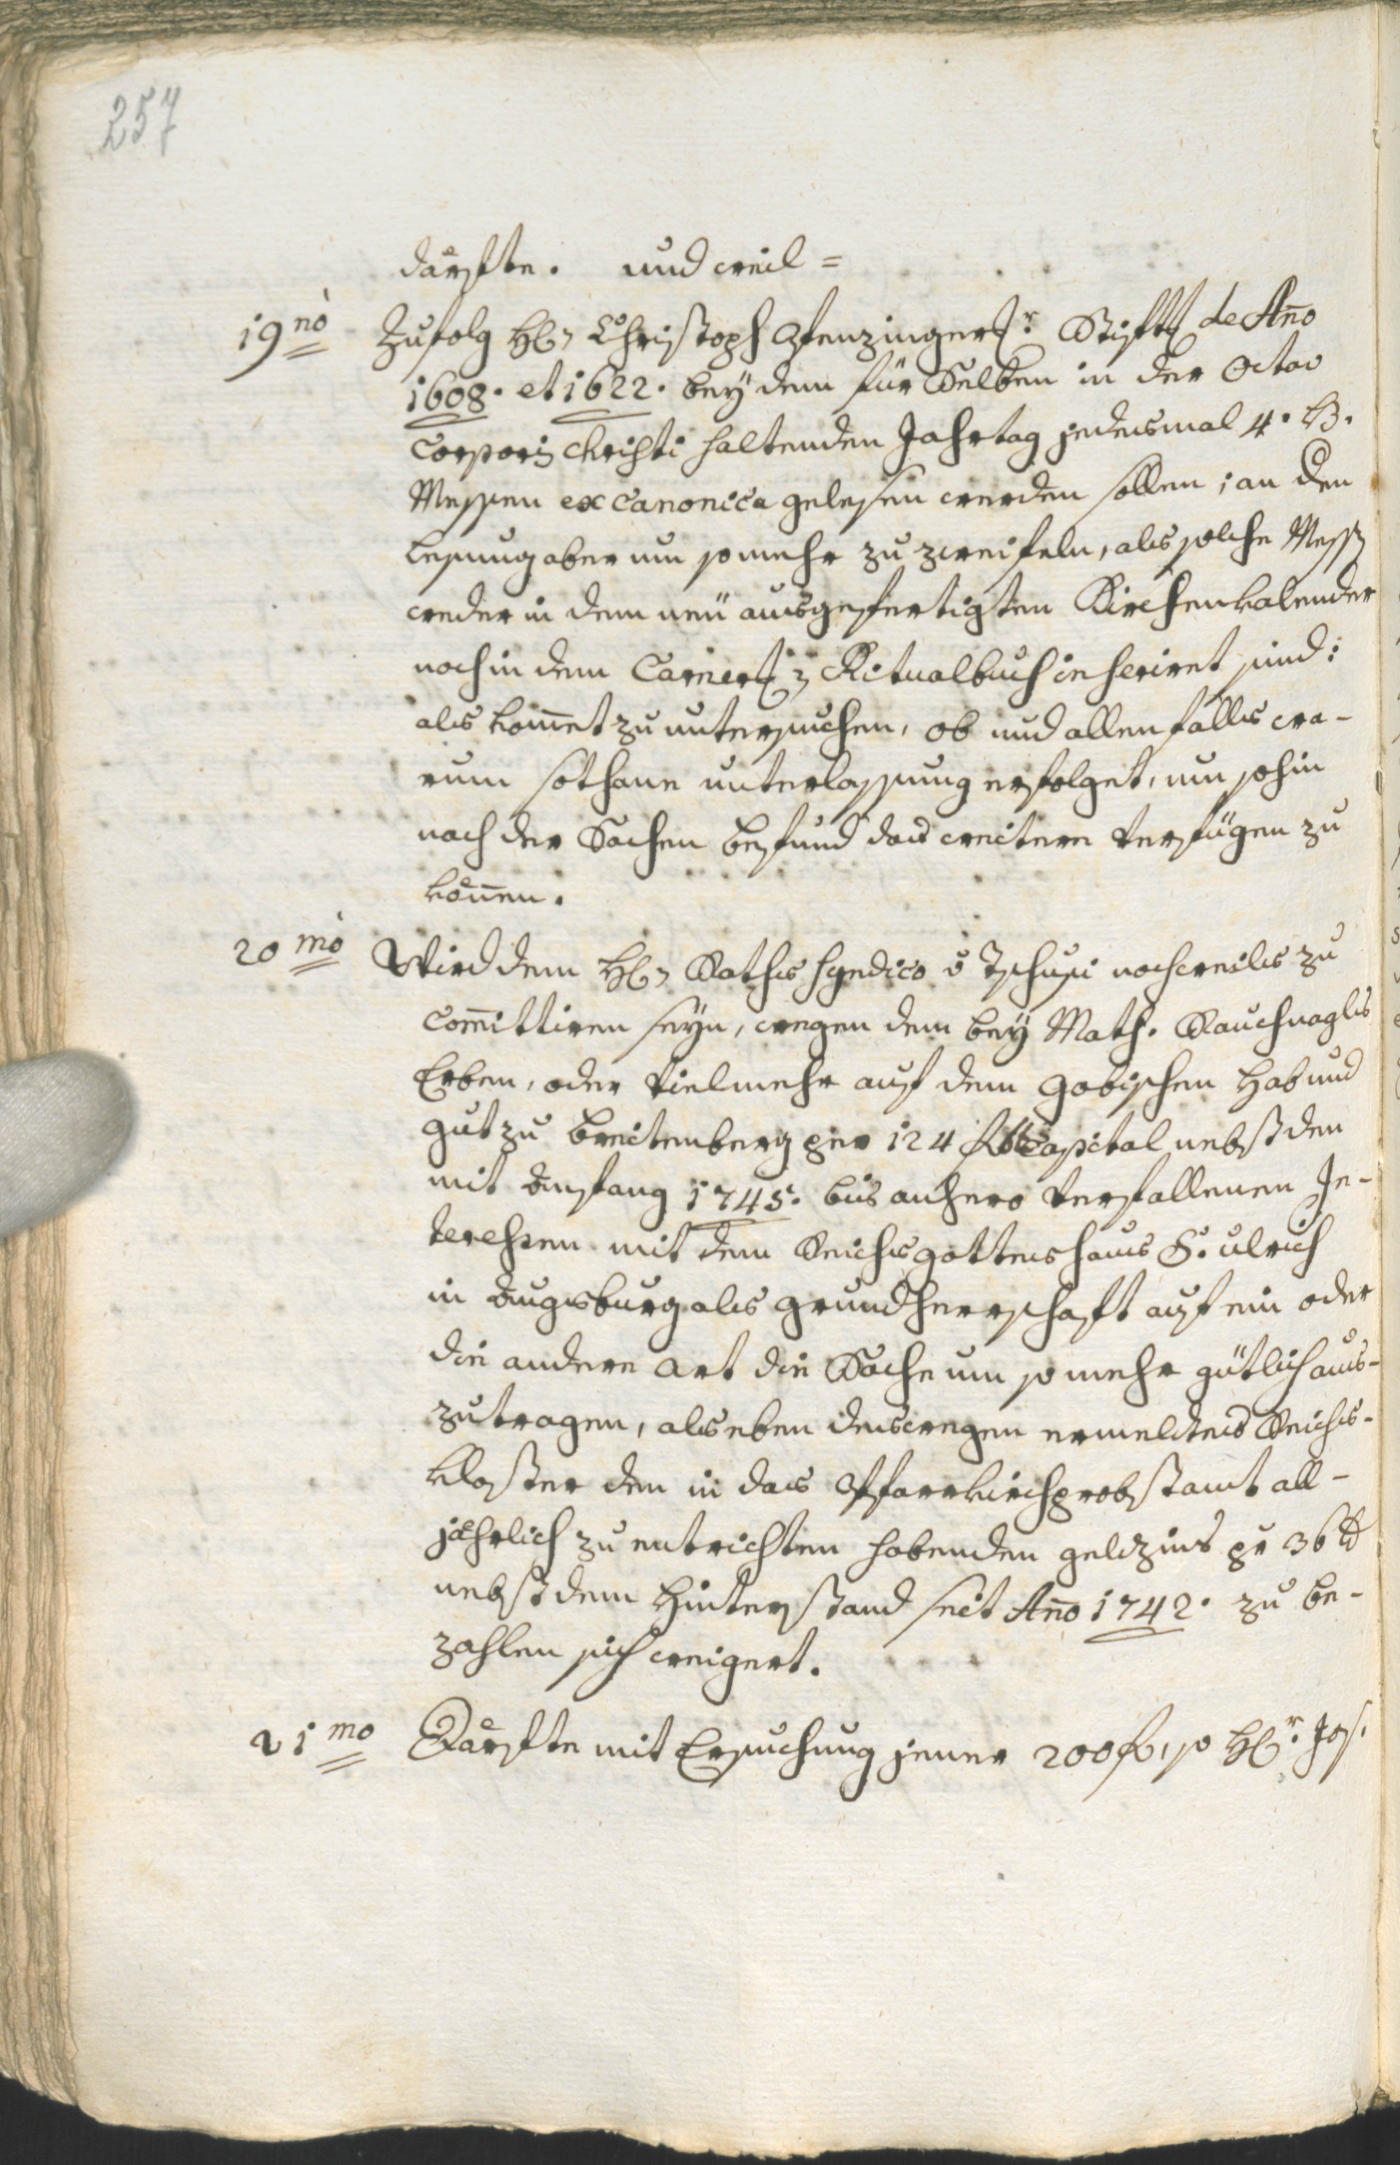 257
dörfte. und weil=
19nò Zufolg H: Christoph Pfenzingers: Stifts de Año
1608. et 1622. bey dem für Selben in der Octav
Corporis Christi haltenden Jahrtag jedesmal 4. H.
Messen ex Canonica gelesen werden sollen; an den
lesung aber um so mehr zu zweifeln, als solche Messen
weder in dem neu ausgefertigten Kirchenkalender
noch in dem Ritualbuch inseriret sind:
als kom̄et zu untersuchen, ob und allenfalls wa-
rum sothane unterlassung erfolget, um sohin
nach der Sachen befund das weitere verfügen zu
können.
20mò Wird dem H: Raths Syndico v Tschusi nochmals zu
Com̄ittiren seyn, wegen dem bey Math. Rauchnagls
Erben, oder vielmehr auf dem gobischen Hab und
gut zu breitenberg per 124 f Capital nebst den
mit Anfang 1745. bis anhero verfallenen In-
teressen mit dem Reichsgotteshaus S. Ulrich
in Augsburg als grundherrschaft auf ein oder
die andere art die Sache um so mehr gütlich aus-
zutragen, als eben deswegen ermeldtes Reichs-
kloster den in das Pfarrkirchprobstamt all-
jährlich zu entrichten habenden geldzins pr 36 d
nebst dem hinterstand seit Año 1742. zu be-
zahlen sich weigert.
21mo Dörfte mit Ersuchung jener 200 f, so H: Jos.